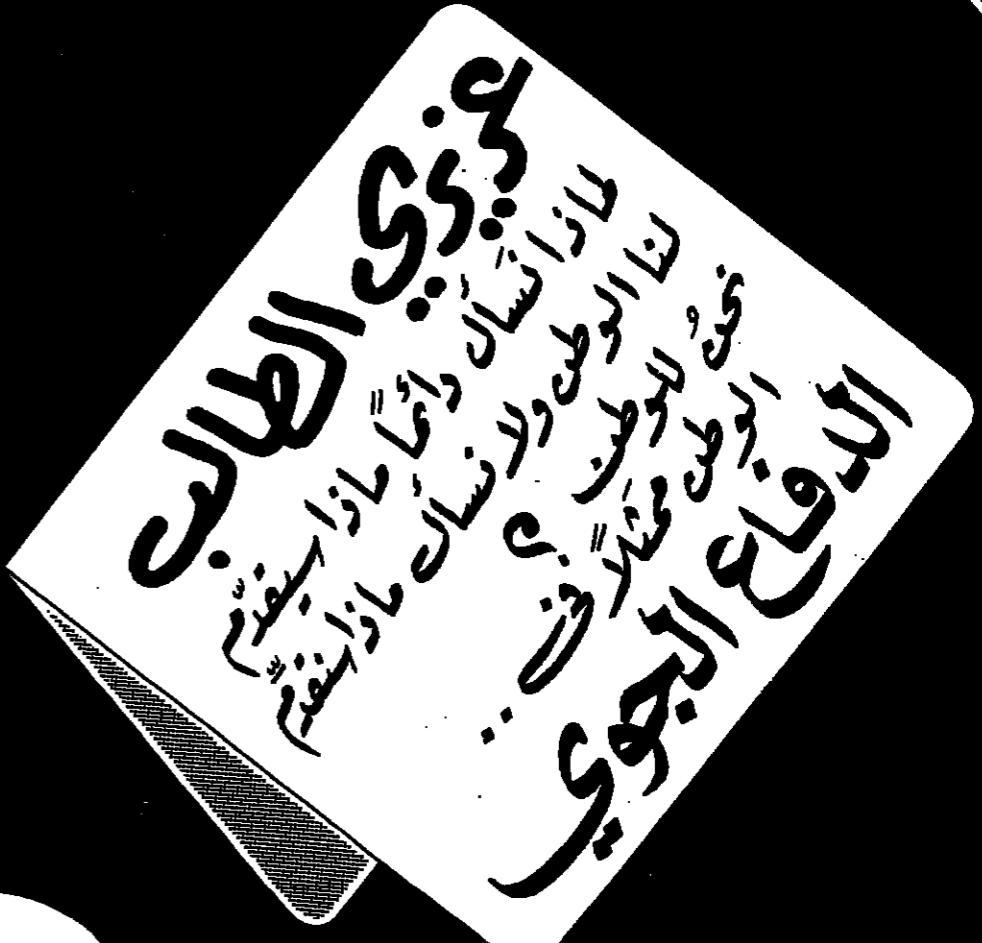 عزيزي الطالب
لماذا نَسأل دائماً ماذا سيقدّم
لنا الوطن ولا نسأل ماذا سنقدّم
نحنُ للوطن ؟
الوطن ممثلاً في ..
الدفاع الجوي